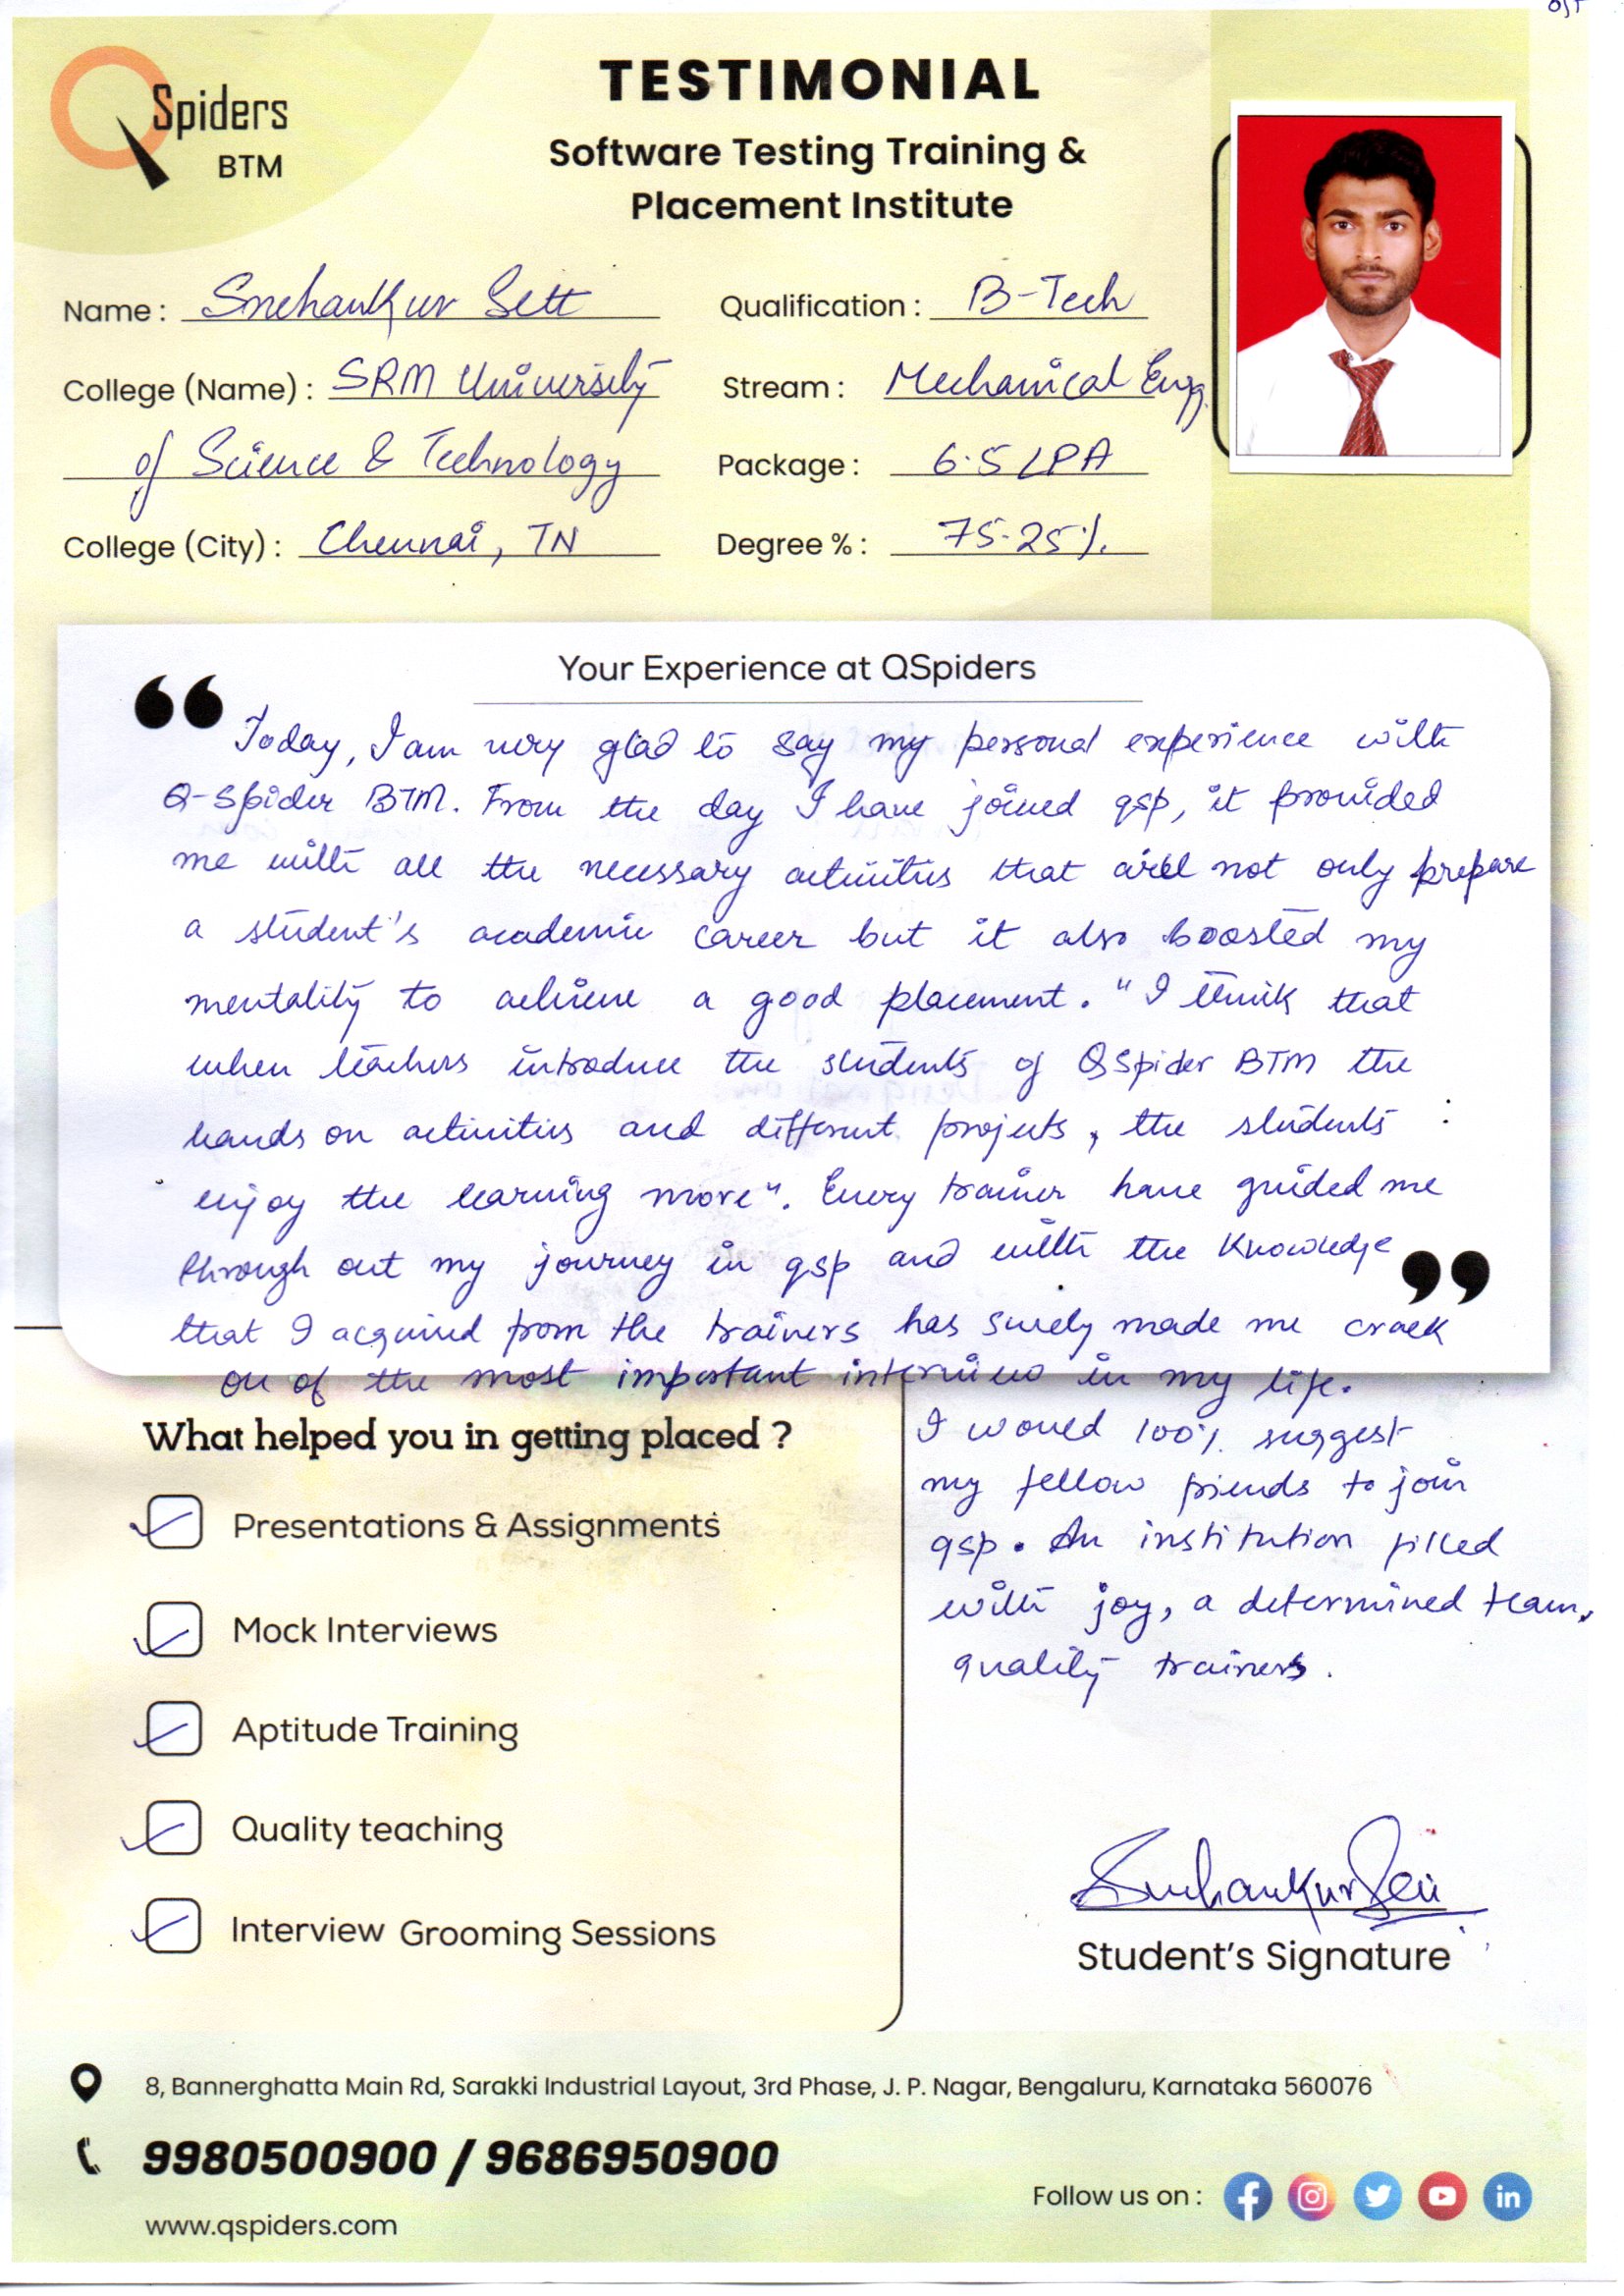 QSpiders
BTM
TESTIMONIAL
Software Testing Training &
Placement Institute
Name : Snehankur Sett
Qualification : B-Tech
College (Name) : SRM University
of Science & Technology
Stream : Mechanical Engg.
Package : 6.5 LPA
College (City) : Chennai, TN
Degree % : 75.25%.
Your Experience at QSpiders
“ Today, I am very glad to say my personal experience with
Q-Spider BTM. From the day I have joined qsp, it provided
me with all the necessary activities that not only prepare
a student's academic career but it also boosted my
mentality to achieve a good placement. "I think that
when teachers introduce the students of QSpider BTM the
hands on activities and different projects, the students
enjoy the learning more". Every trainer have guided me
through out my journey in qsp and with the Knowledge ”
that I acquired from the trainers has surely made me crack
on of the most important interview in my life.
I would 100% suggest
my fellow friends to join
qsp. An institution filled
with joy, a determined team,
quality trainers.
What helped you in getting placed ?
Presentations & Assignments
Mock Interviews
Aptitude Training
Quality teaching
Interview Grooming Sessions
Snehankur Sett
Student’s Signature
8, Bannerghatta Main Rd, Sarakki Industrial Layout, 3rd Phase, J. P. Nagar, Bengaluru, Karnataka 560076
9980500900 / 9686950900
www.qspiders.com
Follow us on :